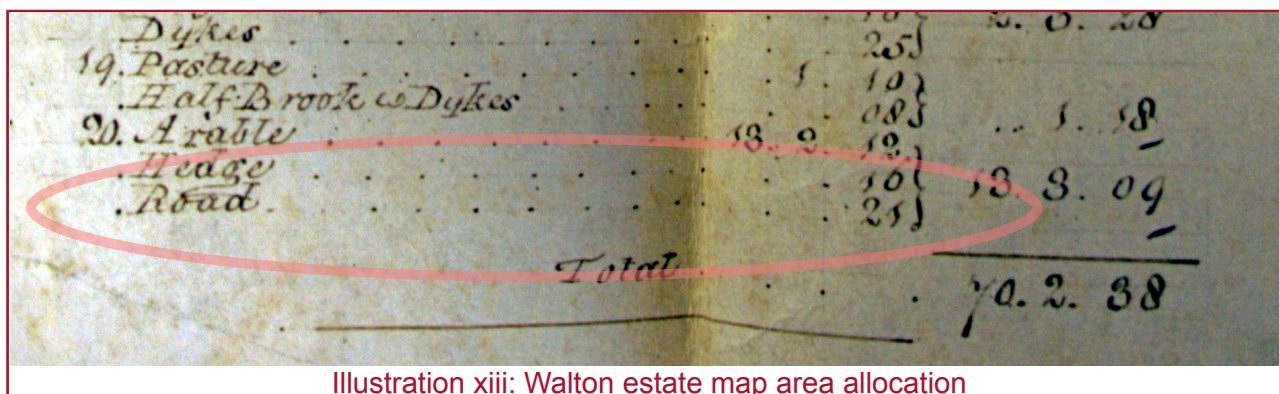 Dykes . . . . . . . . . . 25}
19. Pasture . . . . . . . . . . 1. 10}
. Half-Brook & Dykes . . . . 08} .. 1. 18
20. Arable . . . . . . . . 13. 2. 12}
. Hedge . . . . . . . . . . 16} 13. 3. 09
. Road . . . . . . . . . . 21}
Total . . . 70. 2. 38
Illustration xiii: Walton estate map area allocation